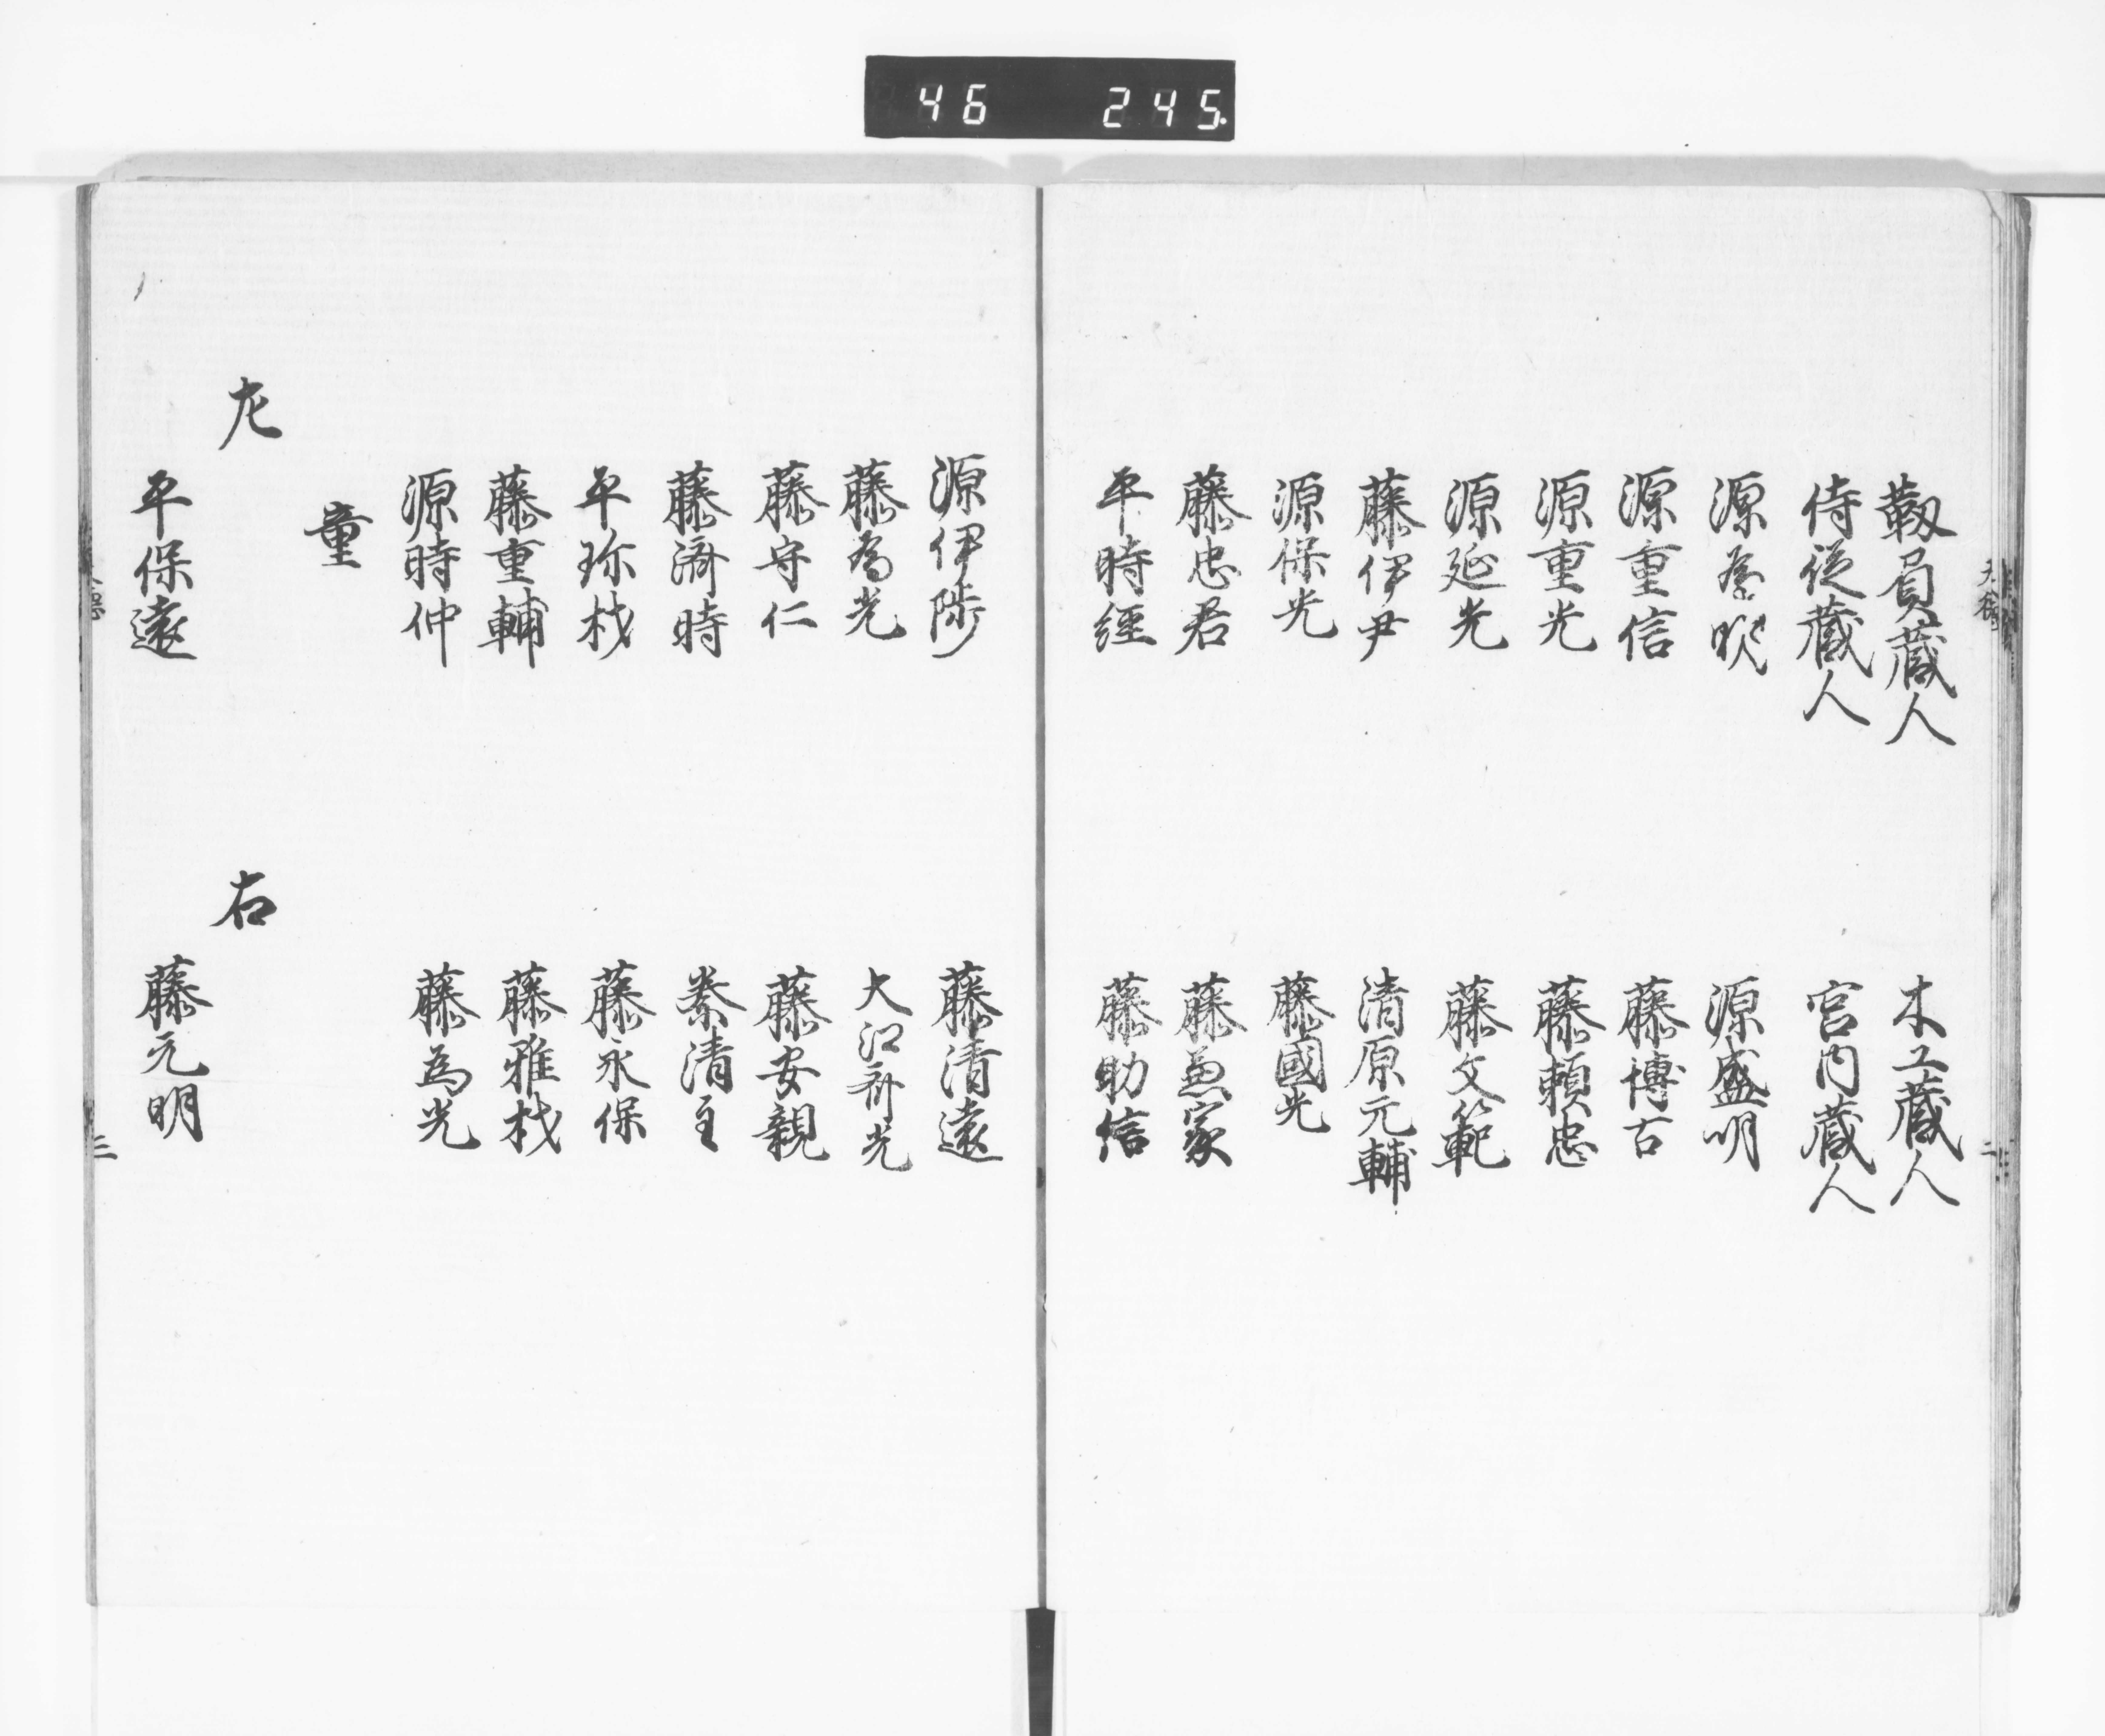 46 245
靱負蔵人 木工蔵人
侍従蔵人 宮内蔵人
源為明 源盛明
源重信 藤博古
源重光 藤頼忠
源延光 藤文範
藤伊尹 清原元輔
源保光 藤國光
藤忠君 藤兼家
平時経 藤助信
源伊陟 藤清遠
藤為光 大江斉光
藤守仁 藤安親
藤済時 秦清主
平珎材 藤永保
藤重輔 藤雅材
源時仲 藤為光
童
左 右
平保遠 藤元明
二
三